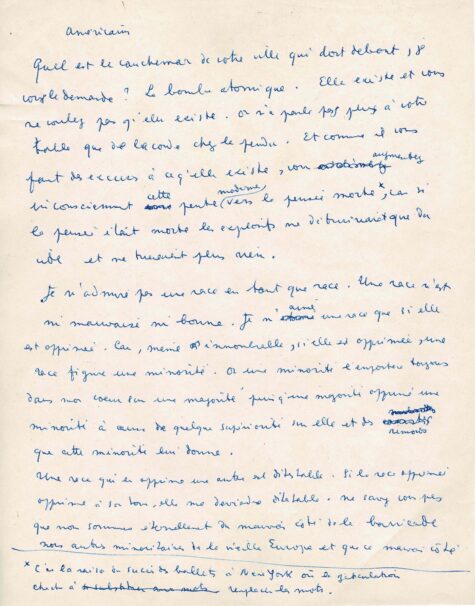 Américains
Quel est le cauchemar de votre ville qui dort debout, je
vous le demande ? La bombe atomique. Elle existe et vous
ne voulez pas qu'elle existe. On n'en parle pas plus à votre
table que de la corde chez le pendu. Et comme il vous
faut des excuses à ce qu'elle existe, vous augmentez
inconsciemment cette pente moderne vers la pensée morte*, car si
la pensée était morte les exploits ne diminueraient que du
vide et ne tueraient plus rien.
Je n'admire pas une race en tant que race. Une race n'est
ni mauvaise ni bonne. Je n'aime une race que si elle
est opprimée. Car, même innombrable, si elle est opprimée, une
race figure une minorité. Or une minorité l'emportera toujours
dans nos coeurs sur une majorité puisqu'une majorité opprime une
minorité à cause de quelque supériorité sur elle et des remords
que cette minorité lui donne.
Une race qui en opprime une autre est détestable. Si la race opprimée
opprime à son tour, elle me deviendra détestable. Ne savez vous pas
que nous sommes éternellement du mauvais côté de la barricade
nous autres minoritaires de la vieille Europe et que ce mauvais côté
* C'est la raison du succès des ballets à New York où la gesticulation
chercha à remplacer les mots.